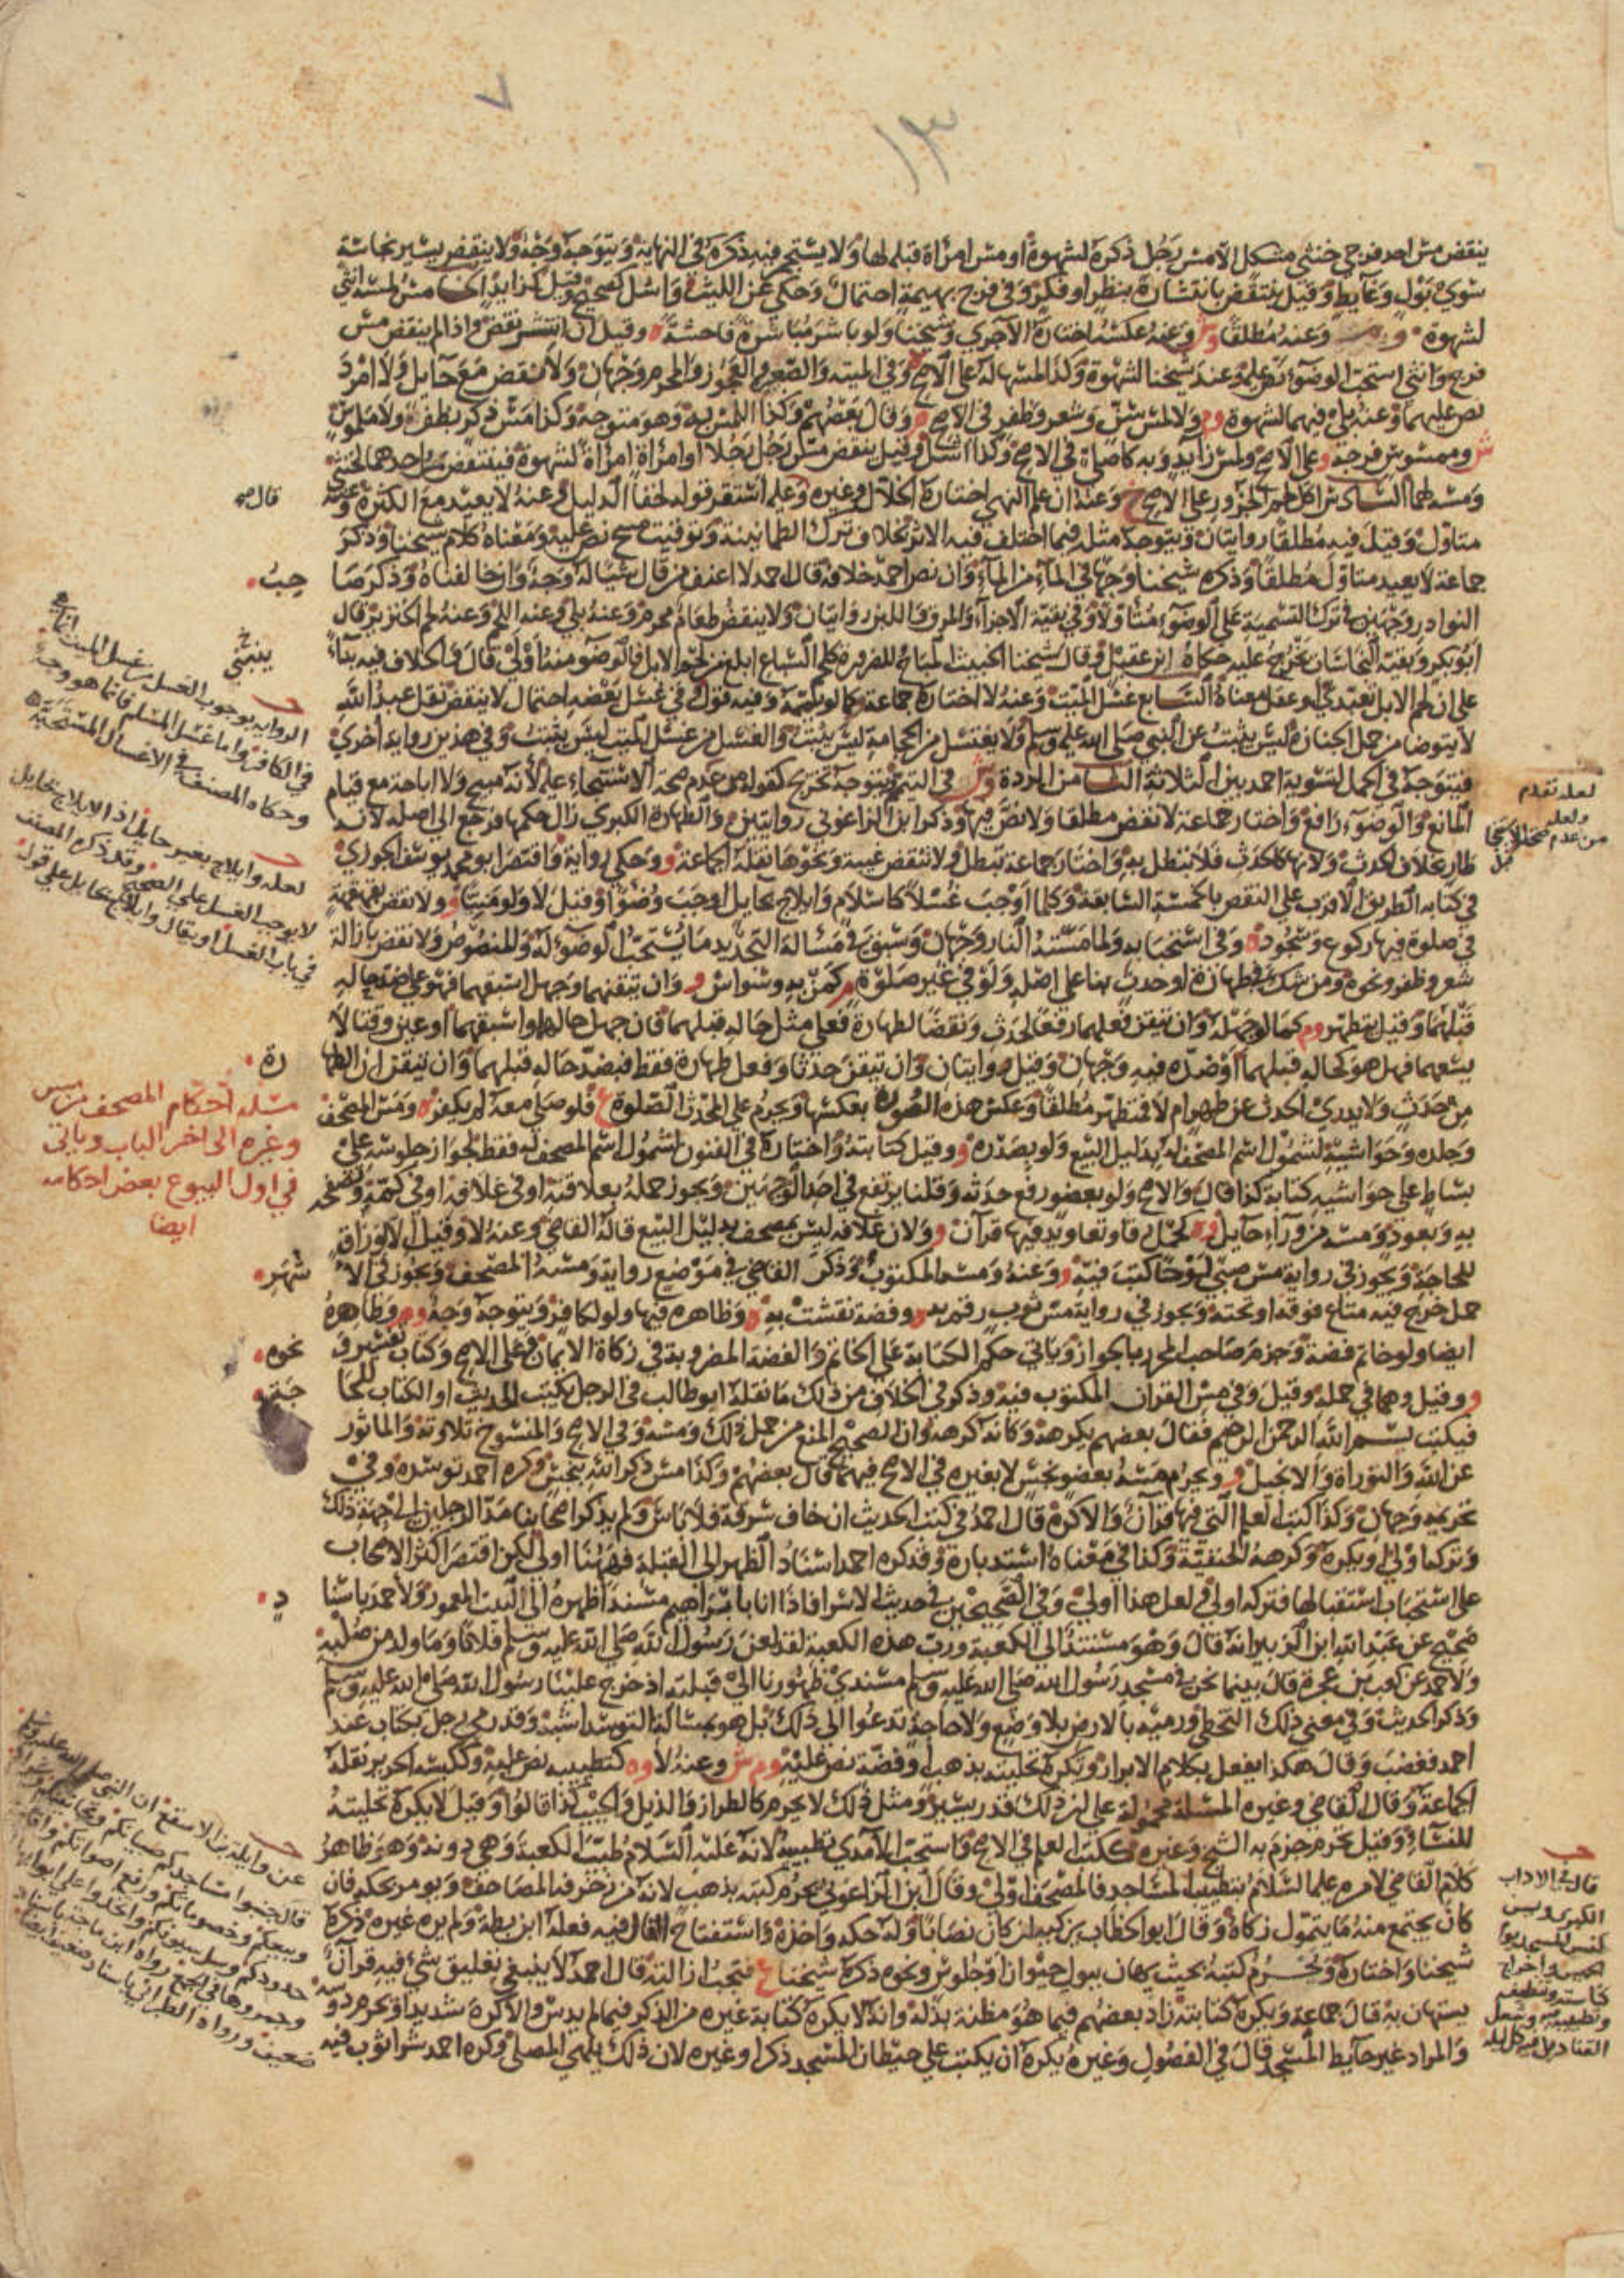 ينقض مس احد فرجي خنثى مشكل الا مس رجل ذكره لشهوة او مس امرأة قبله لها ولا يستجمر فيه ذكره في النهاية ويتوجه وجه ولا ينقض يسير نجاسة
سوى بول وغايط وقيل ينتقض بانتشاره بنظر او فكر وفي فرج بهيمة احتمال وحكي عن الليث واشل كصحيح وقيل كزايد الخامس لمسه انثى
لشهوة وعنه مطلقا وش وعنه عكسه اختاره الاجري وشيخنا ولو باشر مباشرة فاحشة وقيل ان انتشر نقض واذا لم ينقض مس
فرج وانثى استحب الوضوء نص عليه وعند شيخنا لشهوة وكذا لمسها له على الاصح وفي الميتة والصغيرة والعجوز والمحرم وجهان ولا ينقض مع حايل ولا امرد
نص عليهما وعنه بلى فيهما لشهوة وم ولا لمس سن وشعر وظفر في الاصح وقال بعضهم وكذا اللمس به وهو متوجه وكذا مس ذكر بظفر ولا ملموس
ش وممسوس فرجه وعلى الاصح ولمس زايد وبه كاصلي في الاصح وكذا اشل وقيل ينقض مس رجل رجلا او امرأة امرأة لشهوة فينتقض مس احدهما لخنثى
ومسه لهما السادس اكل لحم الجزور على الاصح خ وعنه ان علم النهي اختاره الخلال وغيره وعليه استقر قوله لخفا الدليل وعنه لا يعيد مع الكثرة وعنه
متاول وقيل فيه مطلقا روايتان ويتوجه مثله فيما اختلف فيه الاثر بخلاف ترك الطمانينة وتوقيت مسح نص عليه ومعناه كلام شيخنا وذكر
جماعة لا يعيد متاول مطلقا وذكره شيخنا وجها في الماء من الماء وان نص احمد خلافه قال احمد لا اعنف من قال شيا له وجه وان خالفناه وذكر صا
حب
النوادر وجهين في ترك التسمية على الوضوء متاولا وفي بقية الاجزاء والمرق واللبن روايتان ولا ينقض طعام محرم وعنه بلى وعنه اللحم وعنه لحم الخنزير قال
ابو بكر وبقية النجاسات يخرج عليه حكاه ابن عقيل وقال شيخنا الخبيث المباح للضرورة كلحم السباع ابلغ من لحم الابل فالوضوء منه اولى قال والخلاف فيه بناء
ينبني
على ان لحم الابل تعبدي او عقل معناه السابع غسل الميت وعنه لا اختاره جماعة كما لو يممه وفيه قول وفي غسل بعضه احتمال لا ينقض نقل عبد الله
لا يتوضا من حمل الجنازة ليس يثبت عن النبي صلى الله عليه وسلم ولا يغتسل من الحجامة ليس يثبت والغسل من غسل الميت ليس يثبت وفي هذين رواية اخرى
فيتوجه في الحمل لتسوية احمد بين الثلاثة الثامن الردة وش في التيمم ويتوجه تخريج كقولهم وهو عدم صحة الاستنجاء عليه لانه مبيح ولا اباحة مع قيام
المانع والوضوء رافع واختار جماعة لا نقض مطلقا ولا نص فيها وذكر ابن الزاغوني روايتين والطهارة الكبرى زال حكمها فرجع الى اصله لانه
طار بخلاف الحدث ولانها كالحدث فلا تبطل به واختار جماعة تبطل ولا تنقض غيبة ونحوها نقله الجماعة و وحكي رواية واقتصر ابو محمد يوسف الجوزي
في كتابه الطريق الاقرب على النقض بالخمسة السابقة وكلما اوجب غسلا كاسلام وايلاج بحايل اوجب وضوءا وقيل لا ولو ميتا و ولا نقض بقهقهة
في صلوة فيها ركوع وسجود ه وفي استحبابه ولما مسته النار وجهان وسبق في مسالة التجديد ما يستحب الوضوء له والمنصوص ولا نقض بازالة
شعر وظفر ونحوه ومن شك في طهارة او حدث بنا على اصله ولو في غير صلوة م كمن به وسواس و وان تيقنهما وجهل اسبقهما فهو على ضد حاله
قبلهما وقيل يتطهر وم كما لو جهله وان تيقن فعلهما رفعا لحدث ونقضا لطهارة فعلى مثل حاله قبلهما فان جهل حالهما واسبقهما او عين وقتا لا
يسعهما فهل هو كحاله قبلهما او ضده فيه وجهان وقيل روايتان وان تيقن حدثا وفعل طهارة فقط فبضد حاله قبلهما وان تيقن ان الطها
رة
من حدث ولا يدري الحدث عن طهر ام لا فمتطهر مطلقا وعكس هذه الصورة بعكسها ويحرم على المحدث الصلوة ع فلو صلى معه لم يكفر ه ومس المصحف
وجلده وحواشيه لشمول اسم المصحف له بدليل البيع ولو بصدره و وقيل كتابته واختاره في الفنون لشمول اسم المصحف له فقط لجواز جلوسه على
بساط على حواشيه كتابة كذا قال والاصح ولو بعضو رفع حدثه وقلنا يرتفع في احد الوجهين ويجوز حمله بعلاقته او في غلافه او في كمه وتصفحه
به وبعود ومسه من وراء حايل وه كحمل رقا وتعاويذ فيها قرآن و ولان غلافه ليس بمصحف بدليل البيع قاله القاضي وعنه لا وقيل الا لوراق
للحاجة ويجوز في رواية مس صبي لوحا كتب فيه و وعنه ومسه المكتوب وذكر القاضي في موضع رواية ومسه المصحف ويجوز في الا
شهر
حمل خرج فيه متاع فوقه او تحته ويجوز في رواية مس ثوب رقم به وفضة نقشت به وظاهره فيها ولو لكافر ويتوجه وجه وم وظاهره
ايضا ولو خاتم فضة وجزم صاحب المحرر بالجواز وياتي حكم الكتابة على الخاتم والفضة المضروبة في زكاة الاثمان وعلى الاصح وكتاب تفسير و
نحوه
و وقيل وهما في حمله وقيل وفي مس القران المكتوب فيه وذكر في الخلاف من ذلك ما نقله ابو طالب في الرجل يكتب الحديث او الكتاب للحا
جة
فيكتب بسم الله الرحمن الرحيم فقال بعضهم يكرهه وكانه كرهه وان الصحيح المنع من حمل ذلك ومسه وفي الاصح والمنسوخ تلاوته والماثور
عن الله والتوراة والانجيل و ويحرم مسه بعضو نجس لا بغيره في الاصح فيهما قال بعضهم وكذا مس ذكر الله بنجس وكره احمد توسده وفي
تحريمه وجهان وكذا كتب العلم التي فيها قرآن والا كره قال احمد في كتب الحديث ان خاف سرقة فلا باس ولم يذكر اصحابنا مد الرجلين الى جهة ذلك
وتركه اولى او يكره وكرهه الحنفية وكذا في معناه استدباره وقد كره احمد اسناد الظهر الى القبلة فههنا اولى لكن اقتصر اكثر الاصحاب
على استحباب استقبالها فتركه اولى ولعل هذا اولى وفي الصحيحين في حديث الاسرا فاذا انا بابراهيم مسندا ظهره الى البيت المعمور ولاحمد باسنا
د
صحيح عن عبد الله ابن الزبير انه قال وهو مستند الى الكعبة ورب هذه الكعبة لقد لعن رسول الله صلى الله عليه وسلم فلانا وما ولد من صلبه
ولاحمد عن كعب بن عجرة قال بينما نحن في مسجد رسول الله صلى الله عليه وسلم مسندي ظهورنا الى قبلته اذ خرج علينا رسول الله صلى الله عليه وسلم
وذكر الحديث وفي معنى ذلك التخطي ورميه بالارض بلا وضع ولا حاجة تدعوا الى ذلك بل هو بمسالة التوسد اشبه وقد رمى رجل بكتاب عند
احمد فغضب وقال هكذا يفعل بكلام الابرار ويكره تحليته بذهب او فضة نص عليه وم ش وعنه لا وه كتطييبه نص عليه وككيسه الحرير نقله
الجماعة وقال القاضي وغيره المسئلة محمولة على ان ذلك قدر يسير ومثل ذلك لا يحرم كالطراز والذيل والجيب كذا قالوا وقيل لا يكره تحليته
للنساء وقيل تحرم جزم به الشيخ وغيره ككتب العلم في الاصح واستحب الامدي تطييبه لانه عليه السلام طيب الكعبة وهي دونه وهو ظاهر
كلام القاضي لامره عليه السلام بتطييب المساجد فالمصحف اولى وقال ابن الزاغوني يحرم كتبه بذهب لانه من زخرفة المصاحف ويومر بحكه فان
كان يجتمع منه ما يتمول زكاه وقال ابو الخطاب يزكيه ان كان نصابا وله حكه واخذه واستفتاح الفال فيه فعله ابن بطة ولم يره غيره ذكره
شيخنا واختاره ويحرم كتبه بحيث يهان ببول حيوان او جلوس ونحوه ذكره شيخنا ع فيجب ازالته قال احمد لا ينبغي تعليق شي فيه قرآن
يستهان به قال جماعة ويكره كتابته زاد بعضهم فيما هو مظنة بذله وانه لا يكره كتابة غيره من الذكر فيما لم يدس والا كره شديدا ويحرم دو
سه
والمراد غير حايط المسجد قال في الفصول وغيره يكره ان يكتب على حيطان المسجد ذكرا وغيره لان ذلك يلهي المصلي وكره احمد شرا ثوب فيه
الرواية بوجوب الغسل من غسل الميت انما هي
في الكافر واما غسل المسلم فانما هو وجه
وحكاه المصنف في الاغسال المستحبة
لعله وايلاج بغير حايل اذ الايلاج بحايل
لا يوجب الغسل على الصحيح وقد ذكره المصنف
في باب الغسل او يقال وايلاج بحايل على قول
لعله تقدم
ولعله
من عدم صحة الاستنجا
مسئلة احكام المصحف من مس
وغيره الى اخر الباب وياتي
في اول البيوع بعض احكامه
ايضا
عن واثلة بن الاسقع ان النبي صلى الله عليه وسلم
قال جنبوا مساجدكم صبيانكم ومجانينكم وشراكم
وبيعكم وخصوماتكم ورفع اصواتكم واقامة
حدودكم وسل سيوفكم واتخذوا على ابوابها
وجمروها في الجمع رواه ابن ماجة باسناد
ضعيف ورواه الطبراني باسناد ضعيف ايضا
قال في الاداب
الكبرى ويسن
كنس المسجد يوم
الخميس واخراج
كناسته وتنظيفه
وتطييبه وشعل
القناديل فيه كل ليلة